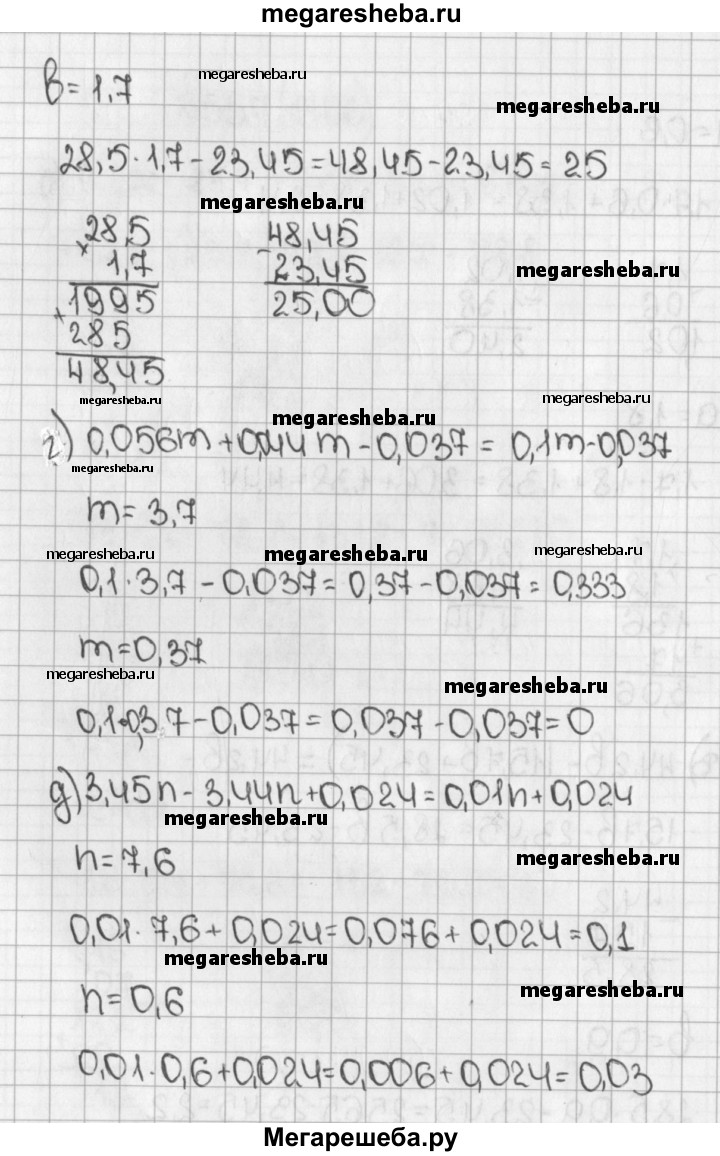 megaresheba.ru
в = 1,7
megaresheba.ru
megaresheba.ru
28,5 · 1,7 - 23,45 = 48,45 - 23,45 = 25
megaresheba.ru
× 28,5
1,7
1995
+ 285
48,45
- 48,45
23,45
25,00
megaresheba.ru
megaresheba.ru
megaresheba.ru
megaresheba.ru
г) 0,056m + 0,044m - 0,037 = 0,1m - 0,037
megaresheba.ru
m = 3,7
megaresheba.ru
megaresheba.ru
megaresheba.ru
0,1 · 3,7 - 0,037 = 0,37 - 0,037 = 0,333
m = 0,37
megaresheba.ru
megaresheba.ru
0,1 · 0,37 - 0,037 = 0,037 - 0,037 = 0
д) 3,45n - 3,44n + 0,024 = 0,01n + 0,024
megaresheba.ru
n = 7,6
megaresheba.ru
0,01 · 7,6 + 0,024 = 0,076 + 0,024 = 0,1
megaresheba.ru
n = 0,6
megaresheba.ru
0,01 · 0,6 + 0,024 = 0,006 + 0,024 = 0,03
Мегарешеба.ру